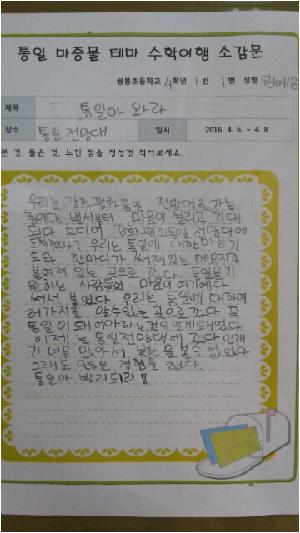 통일 마중물 테마 수학여행 소감문
초등학교 4학년 1반 1번 성명
제목 통일아 와라
장소 통일 전망대 일시 2016. 4. 6. ~ 4. 8
본 것, 들은 것, 느낀 점을 정성껏 적어보세요.
우리는 강화 평화 전망대로 가는
중이다. 벌써부터 마음이 떨리고 기대
된다. 드디어 강화 평화 통일 전망대에
도착했다. 우리는 통일에 대한
한마디가 써져있는 메모지가
붙여져 있는 곳으로 갔다. 통일을
원하는 사람들의 마음이
써서 붙였다. 우리는 통일에 대하여
여러가지를 알 수 있는 곳으로 갔다. 꼭
통일이 돼어야 하는 것을 알게 되었다.
이제는 통일전망대에 갔다. 안개
가 너무 많아서 북한을 볼 수 없었다.
그래도 경험을
통일아 빨리 되라!!